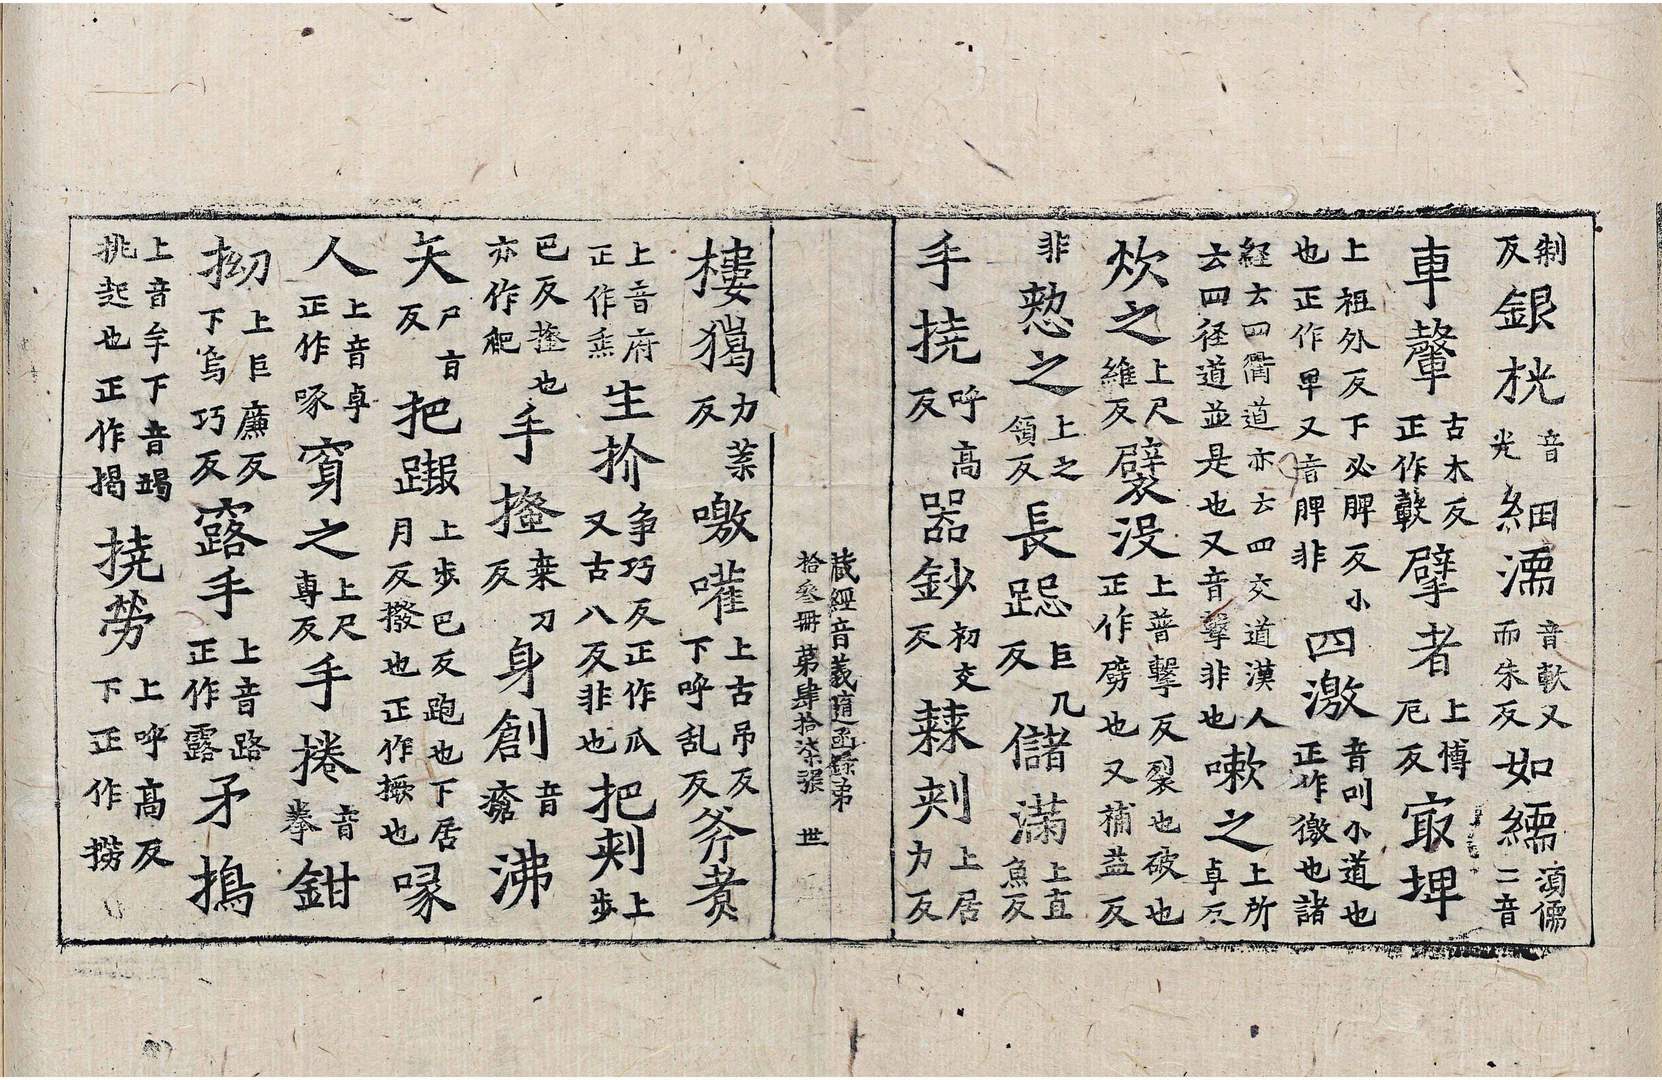 制反銀桄音光絪濡音軟又而朱反如繻須儒二音
車轚古木反正作轂擘者上博厄反㝡埤
上祖外反下必脾反小也正作卑又音脾非四激音叫小道也正作徼也諸
経云四衢道亦云四交道漢人云四径道並是也又音擊非也嗽之上所卓反
炊之上尺維反襞没上普擊反裂也破也正作劈也又補益反
非憗之上之領反長跽巨几反儲滿上直魚反
手撓呼高反器鈔初交反蕀刾上居力反
藏經音義隨函録第拾叄冊 第肆拾柒張 世
樓㹇力葉反噭嚾上古吊反下呼乱反斧㷊
上音府正作𤋲生抓争巧反正作爪又古八反非也把刾上步
巴反㨨也亦作爬手㨨桒刀反身創音瘡沸
矢尸盲反把踙上步巴反跑也下居月反撥也正作撅也喙
人上音卓正作啄穿之上尺專反手捲音拳鉗
拗上巨廉反下烏巧反露手上音路正作露矛搗
上音牟下音竭挑起也正作揭撓劳上呼高反下正作撈